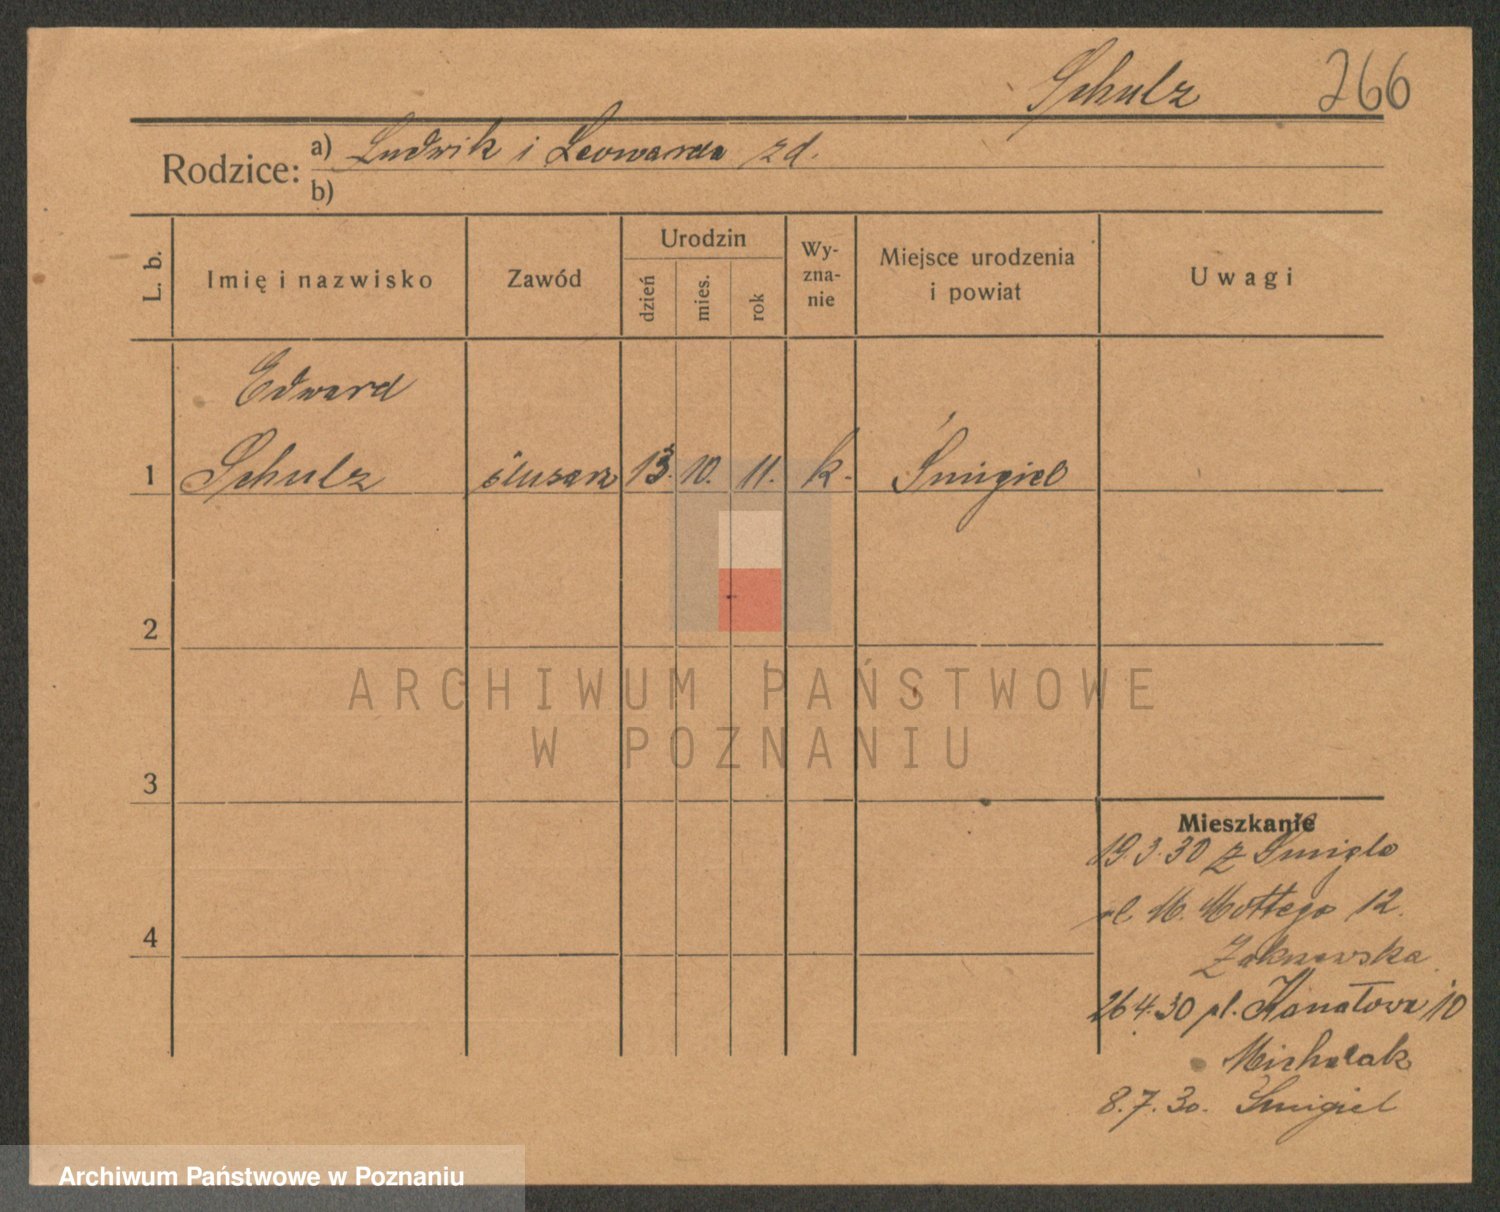 Schulz 266
Rodzice: a) Ludwik i Leowarda zd.
b)
L. b.
Imię i nazwisko
Zawód
Urodzin
dzień
mies.
rok
Wy-
zna-
nie
Miejsce urodzenia
i powiat
Uwagi
Edward
1 Schulz ślusarz 13. 10. 11. k. Śmigiel
2
ARCHIWUM PAŃSTWOWE
W POZNANIU
3
Mieszkanie
19.3.30 z Śmigla
M. Mottego 12.
4
26.4.30 pl. Kanałowa 10
Michalak
8.7.30. Śmigiel
Archiwum Państwowe w Poznaniu